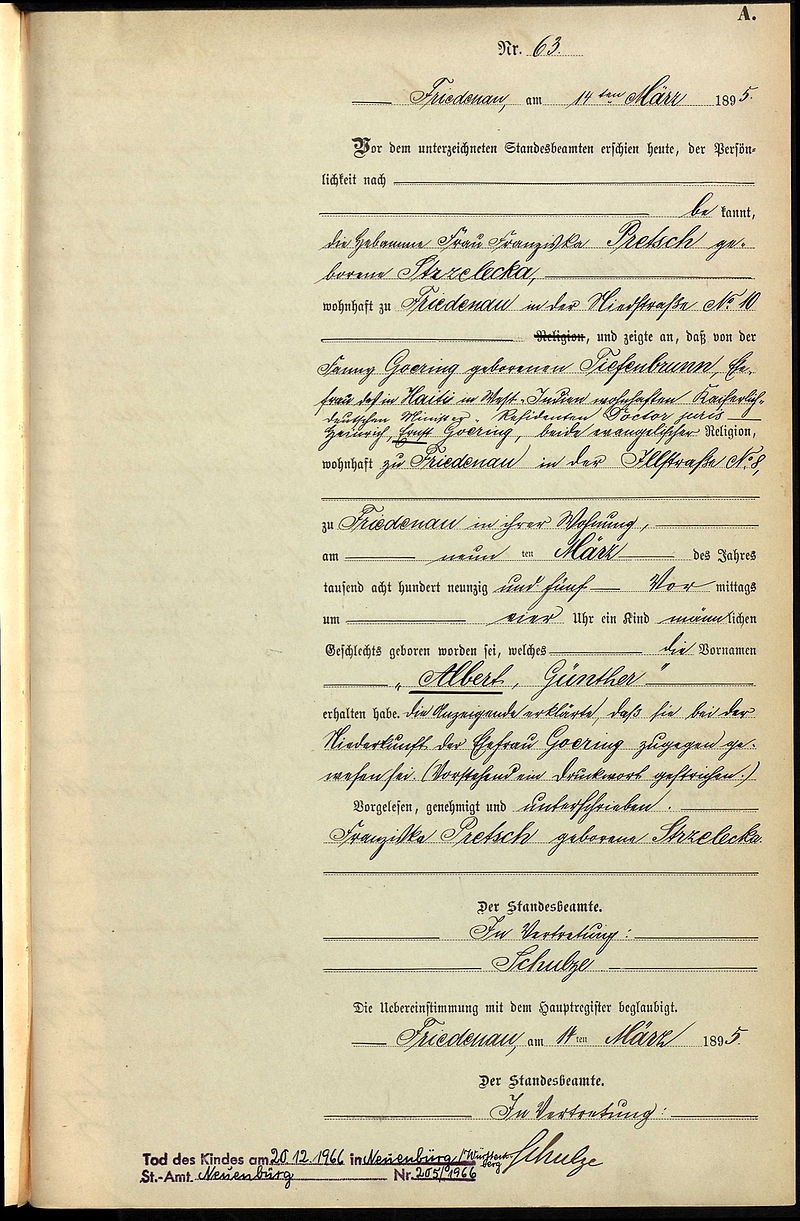 A.
Nr. 63.
Friedenau, am 14ten März 1895.
Vor dem unterzeichneten Standesbeamten erschien heute, der Persön-
lichkeit nach
be kannt,
die Hebamme Frau Franziska Pretsch ge-
borene Strzelecka,
wohnhaft zu Friedenau in der Niedstraße No 10
Religion, und zeigte an, daß von der
Fanny Goering geborenen Tiefenbrunn, Ehe-
frau des in Haiti in West-Indien wohnhaften Kaiserlich-
deutschen Minister Residenten Doctor juris
Heinrich, Ernst Goering, beide evangelischer Religion,
wohnhaft zu Friedenau in der Illstraße No. 8,
zu Friedenau in ihrer Wohnung,
am neun ten März des Jahres
tausend acht hundert neunzig und fünf Vor mittags
um vier Uhr ein Kind männlichen
Geschlechts geboren worden sei, welches die Vornamen
„Albert, Günther"
erhalten habe. Die Anzeigende erklärte, daß sie bei der
Niederkunft der Ehefrau Goering zugegen ge-
wesen sei. (Vorstehend ein Druckwort gestrichen.)
Vorgelesen, genehmigt und unterschrieben.
Franziska Pretsch geborene Strzelecka.
Der Standesbeamte.
In Vertretung:
Schulze
Die Uebereinstimmung mit dem Hauptregister beglaubigt.
Friedenau, am 14ten März 1895.
Der Standesbeamte.
In Vertretung:
Schulze
Tod des Kindes am 20.12.1966 in Neuenbürg/Württemberg
St.-Amt. Neuenbürg Nr. 205/1966